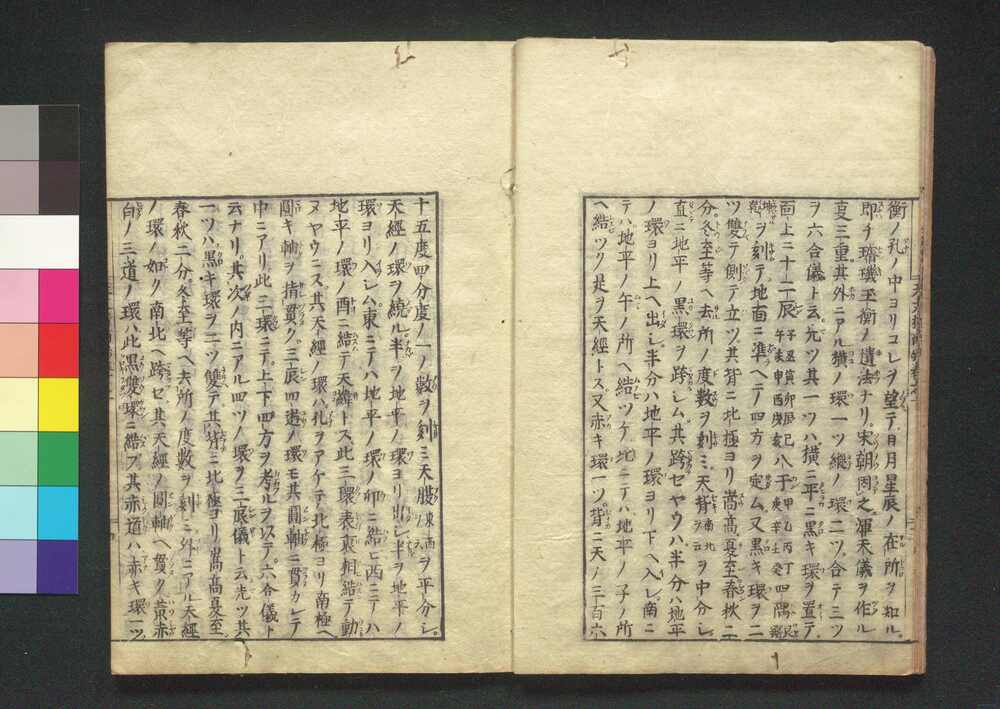 衡ノ孔ノ中ヨリコレヲ望テ日月星辰ノ在所ヲ知ル
即チ璿璣玉衡ノ遺法ナリ宋朝圀之渾天儀ヲ作ル
夏三重其外ニアル横ノ環一ツ縦ノ環二ツ合テ三ツ
ヲ六合儀ト云先ツ其一ツハ横ニ平ニ黒キ環ヲ置テ
面上ニ十二辰子丑寅卯辰巳午未申酉戌亥八干甲乙丙丁庚辛壬癸四隅艮巽
坤乾ヲ刻テ地面ニ準ヘテ四方ヲ定ム又黒キ環ヲ二
ツ雙テ側テ立ツ其背ニ北極ヨリ嵩高夏至春秋二
分冬至等ヘ去所ノ度數ヲ刻ミ天背南北ト云ヲ中分シ
直ニ地平ノ黒環ヲ跨レム其跨セヤウハ半分ハ地平
ノ環ヨリ上ヘ出シ半分ハ地平ノ環ヨリ下ヘ入レ南ニ
テハ地平ノ午ノ所ヘ結ツケ北ニテハ地平ノ子ノ所
ヘ結ツケ是ヲ天經トス又赤キ環一ツ背ニ天ノ三百六
十五度四分度ノ一ノ數ヲ刻ミ天腹東西ト云ヲ平分シ
天經ノ環ヲ繞ル半ヲ地平ノ環ヨリ出シ半ヲ地平ノ
環ヨリ入レム東ニテハ地平ノ環ノ卯ニ結ヒ西ニテハ
地平ノ環ノ酉ニ結テ天緯トス此三環表裏相結テ動
ヌヤウニス其天經ノ環ハ孔ヲアケテ北極ヨリ南極ヘ
圓キ軸ヲ指貫ク三辰四遊ノ環モ其圓軸ニ貫カレテ
中ニアリ此三環ニテ上下四方ヲ考ルヲ以テ六合儀ト
云ナリ其次ノ内ニアル四ツノ環ヲ三辰儀ト云先ツ其
一ツハ黒キ環ヲ二ツ雙テ其背ニ北極ヨリ嵩高夏至
春秋二分冬至等ヘ去所ノ度數ヲ刻ミ外ニアル天經
ノ環ノ如ク南北ヘ跨セ其天經ノ圓軸ヘ貫ク黄赤
白ノ三道ノ環ハ此黒雙環ニ結フ其赤道ハ赤キ環一ツ